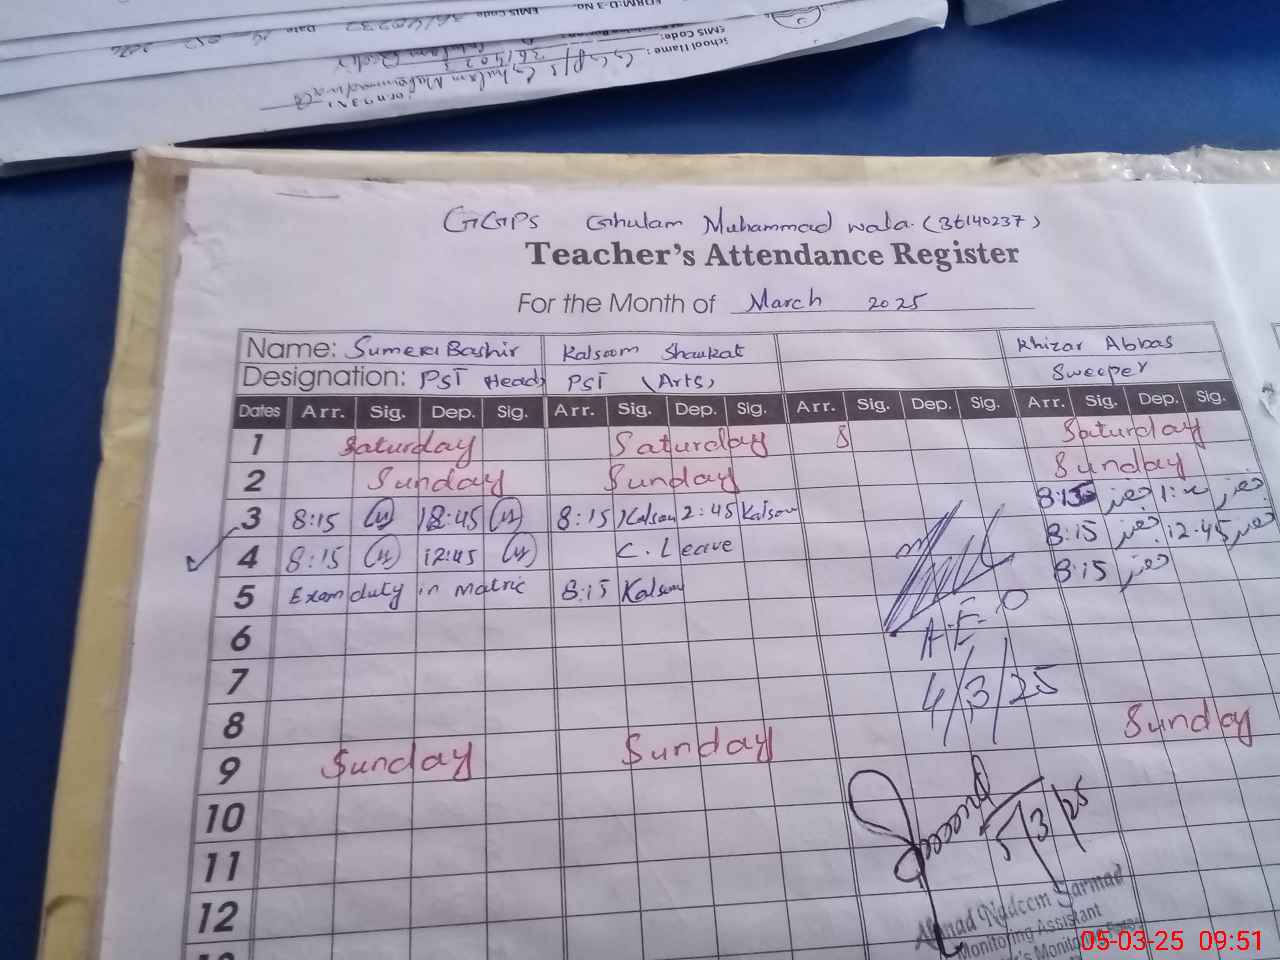 School Name:
EMIS Code:
GGPS Ghulam Muhammad wala (36140237)
Teacher's Attendance Register
For the Month of March 2025
Name: Sumera Bashir Kalsoom Shaukat Khizar Abbas
Designation: PST Head PST (Arts) Sweeper
Dates Arr. Sig. Dep. Sig. Arr. Sig. Dep. Sig. Arr. Sig. Dep. Sig. Arr. Sig. Dep. Sig.
1 Saturday Saturday S Saturday
2 Sunday Sunday Sunday
3 8:15 12:45 8:15 Kalsoom 2:45 Kalsoom 8:15 خضر خضر
4 8:15 12:45 C. Leave 8:15 خضر 12:45 خضر
5 Exam duty in matric 8:15 Kalsoom 8:15 خضر
A.E.O
6
7
4/3/25
8
9 Sunday Sunday Sunday
10
5/3/25
11
12
Ahmad Nadeem Sarmad
Monitoring Assistant
05-03-25 09:51